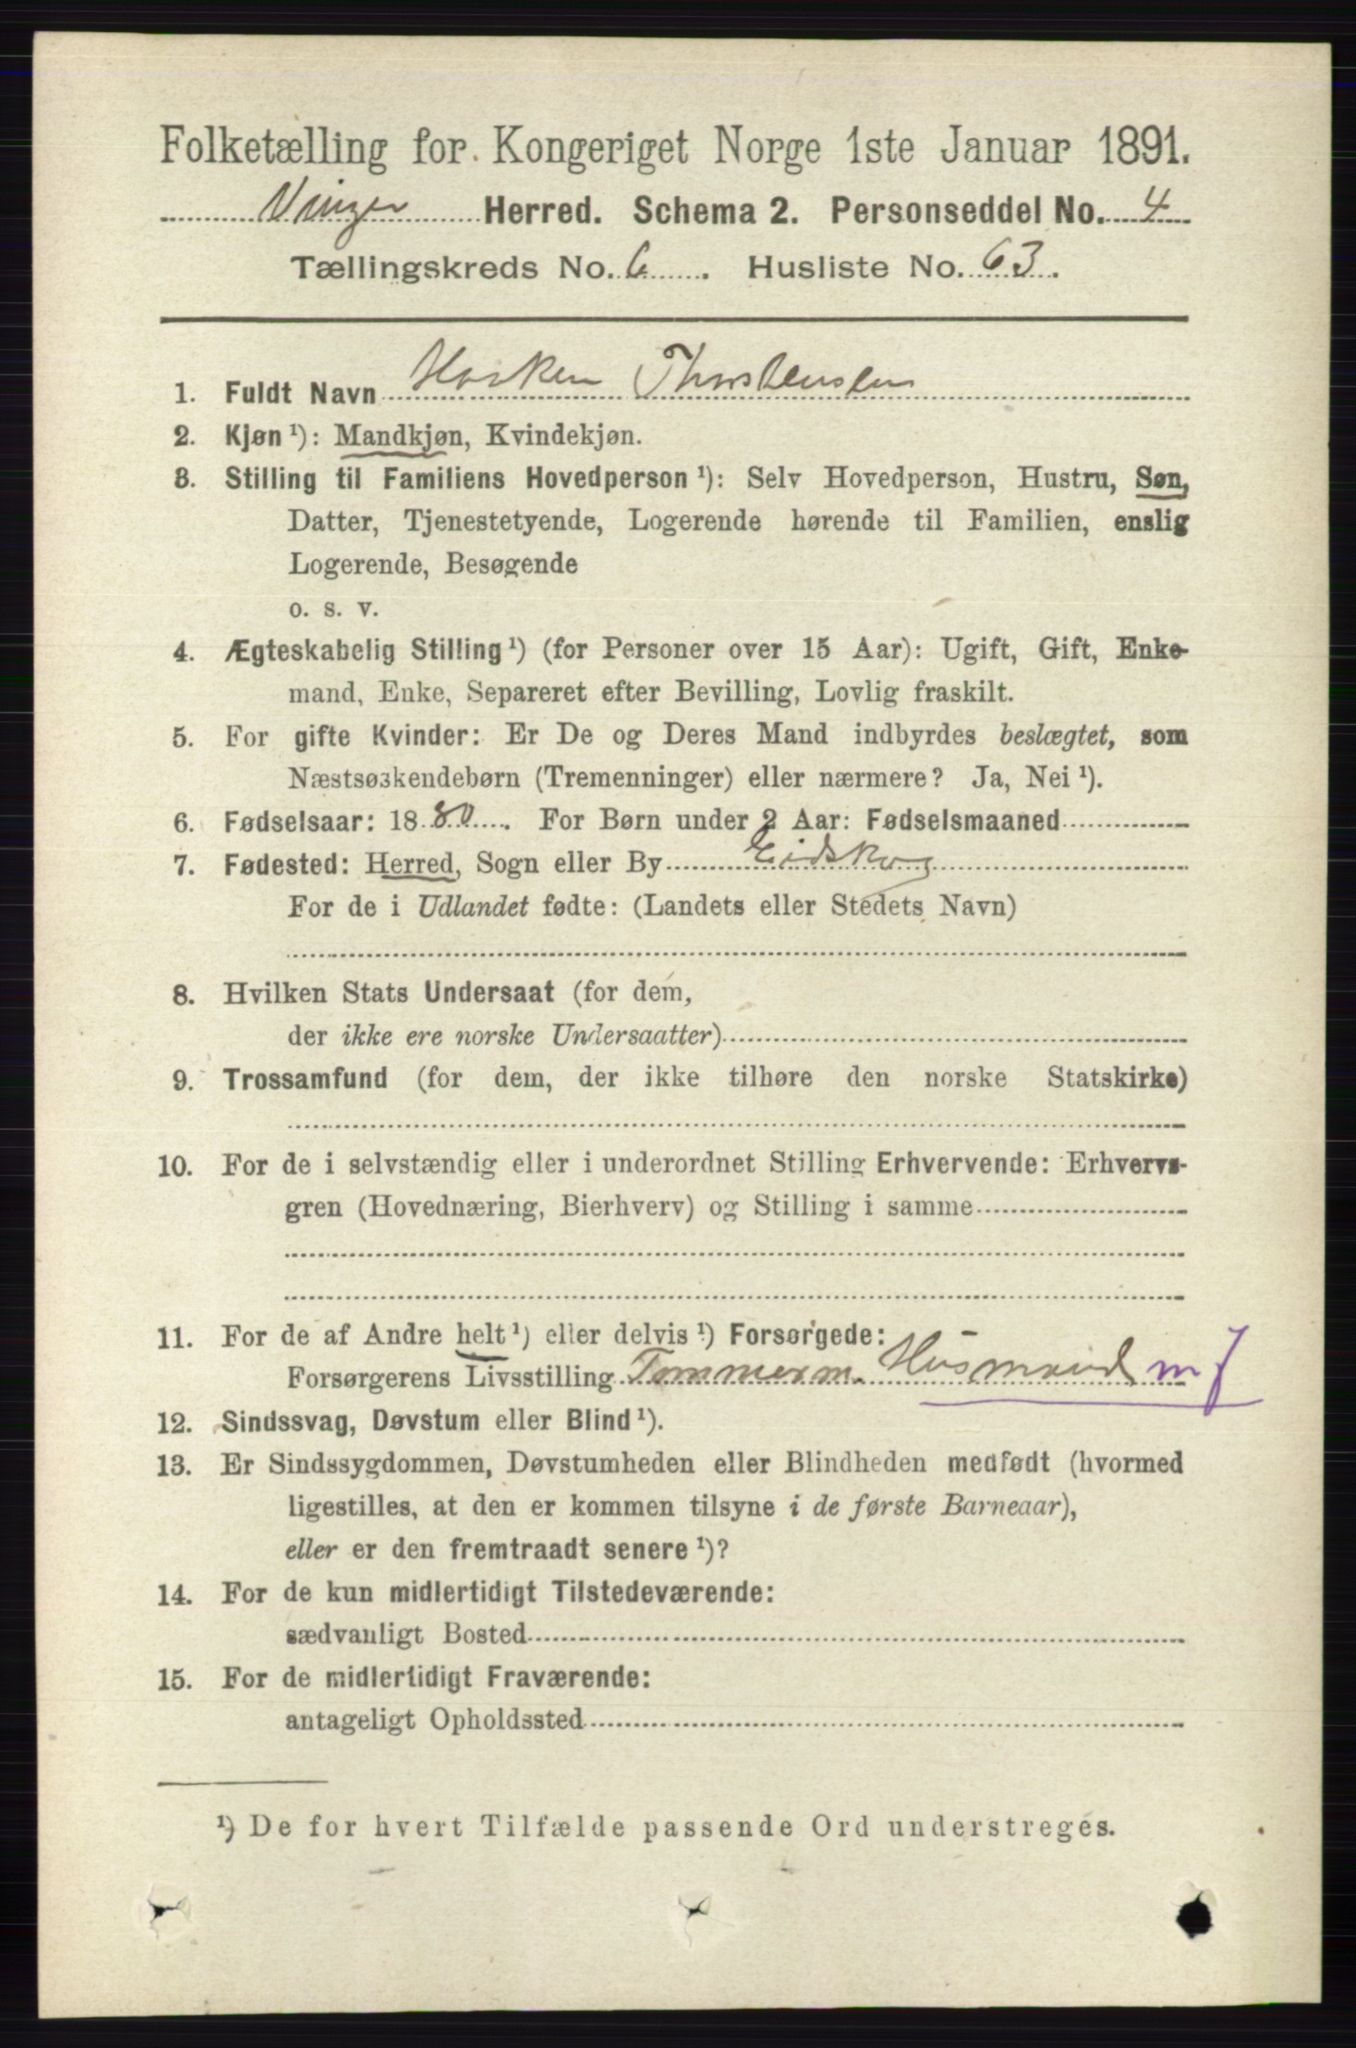 Folketælling for Kongeriget Norge 1ste Januar 1891.
Vinger Herred. Schema 2. Personseddel No. 4
Tællingskreds No. 6. Husliste No. 63.
1. Fuldt Navn Haaken Thorstensen
2. Kjøn ¹): Mandkjøn, Kvindekjøn.
3. Stilling til Familiens Hovedperson ¹): Selv Hovedperson, Hustru, Søn,
Datter, Tjenestetyende, Logerende hørende til Familien, enslig
Logerende, Besøgende
o. s. v.
4. Ægteskabelig Stilling ¹) (for Personer over 15 Aar): Ugift, Gift, Enke-
mand, Enke, Separeret efter Bevilling, Lovlig fraskilt.
5. For gifte Kvinder: Er De og Deres Mand indbyrdes beslægtet, som
Næstsøskendebørn (Tremenninger) eller nærmere? Ja, Nei ¹).
6. Fødselsaar: 1880. For Børn under 2 Aar: Fødselsmaaned
7. Fødested: Herred, Sogn eller By Eidskog
For de i Udlandet fødte: (Landets eller Stedets Navn)
8. Hvilken Stats Undersaat (for dem,
der ikke ere norske Undersaatter)
9. Trossamfund (for dem, der ikke tilhøre den norske Statskirke)
10. For de i selvstændig eller i underordnet Stilling Erhvervende: Erhvervs-
gren (Hovednæring, Bierhverv) og Stilling i samme
11. For de af Andre helt ¹) eller delvis ¹) Forsørgede:
Forsørgerens Livsstilling Tømmerm. Husmand m J
12. Sindssvag, Døvstum eller Blind ¹).
13. Er Sindssygdommen, Døvstumheden eller Blindheden medfødt (hvormed
ligestilles, at den er kommen tilsyne i de første Barneaar),
eller er den fremtraadt senere ¹)?
14. For de kun midlertidigt Tilstedeværende:
sædvanligt Bosted
15. For de midlertidigt Fraværende:
antageligt Opholdssted
¹) De for hvert Tilfælde passende Ord understreges.